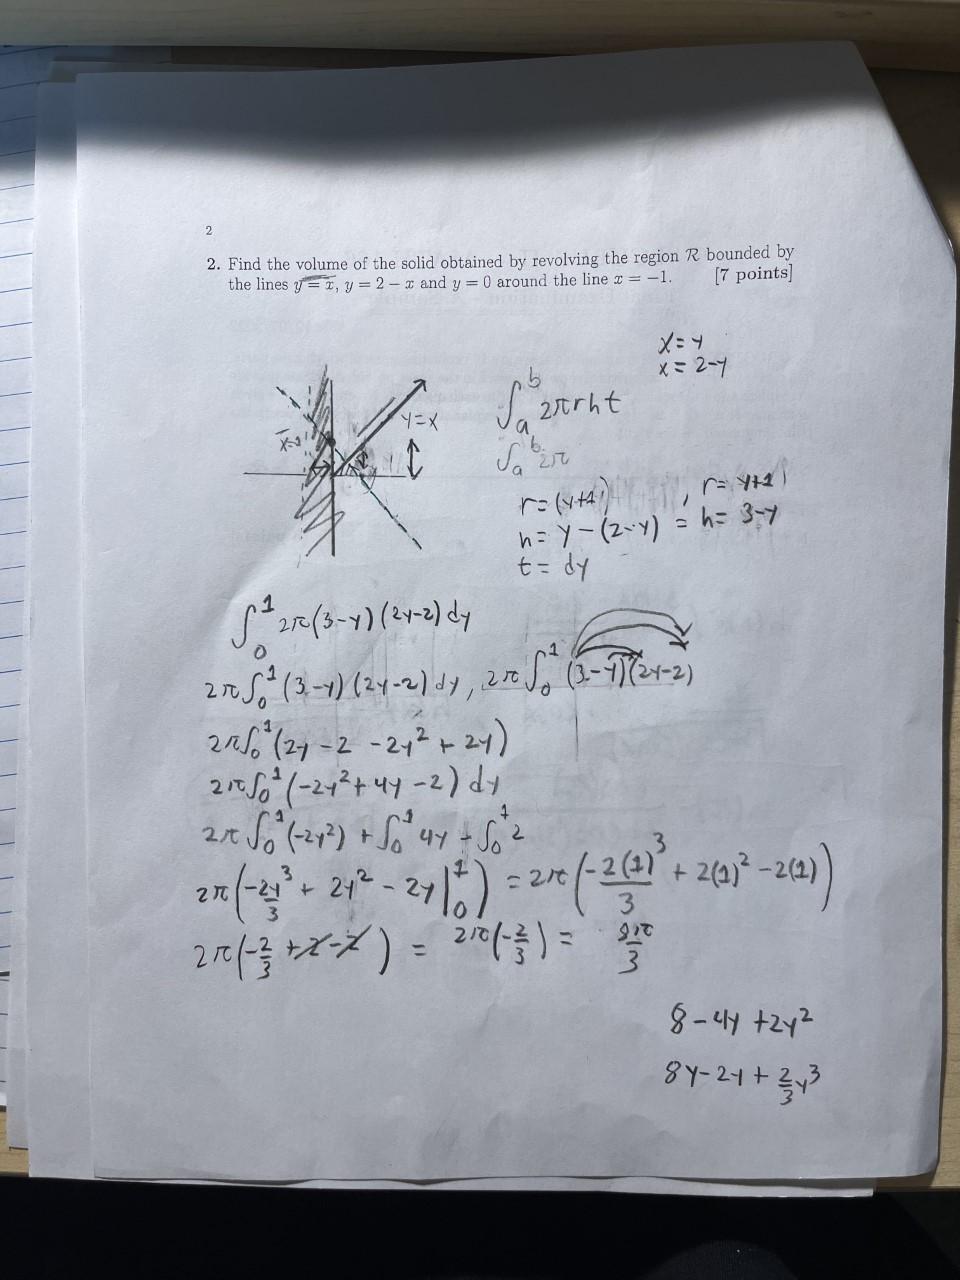 2
2. Find the volume of the solid obtained by revolving the region R bounded by
the lines y = x, y = 2 − x and y = 0 around the line x = −1. [7 points]
x = y
x = 2-y
y=x
∫_a^b 2πrht
∫_a^b 2π
r=(y+1) , r= y+1
h= y-(2-y) = h= 3-y
t= dy
∫_0^1 2π(3-y)(2y-2)dy
2π∫_0^1 (3-y)(2y-2)dy, 2π∫_0^1 (3-y)(2y-2)
2π∫_0^1 (2y-2-2y²+2y)
2π∫_0^1 (-2y²+4y-2)dy
2π∫_0^1 (-2y²) + ∫_0^1 4y - ∫_0^1 2
2π(-2y³/3 + 2y² - 2y |_0^1) = 2π(-2(1)³/3 + 2(1)² - 2(1))
2π(-2/3 + 2 - 2) = 2π(-2/3) =
8-4y+2y²
8y-2y+2/3y³